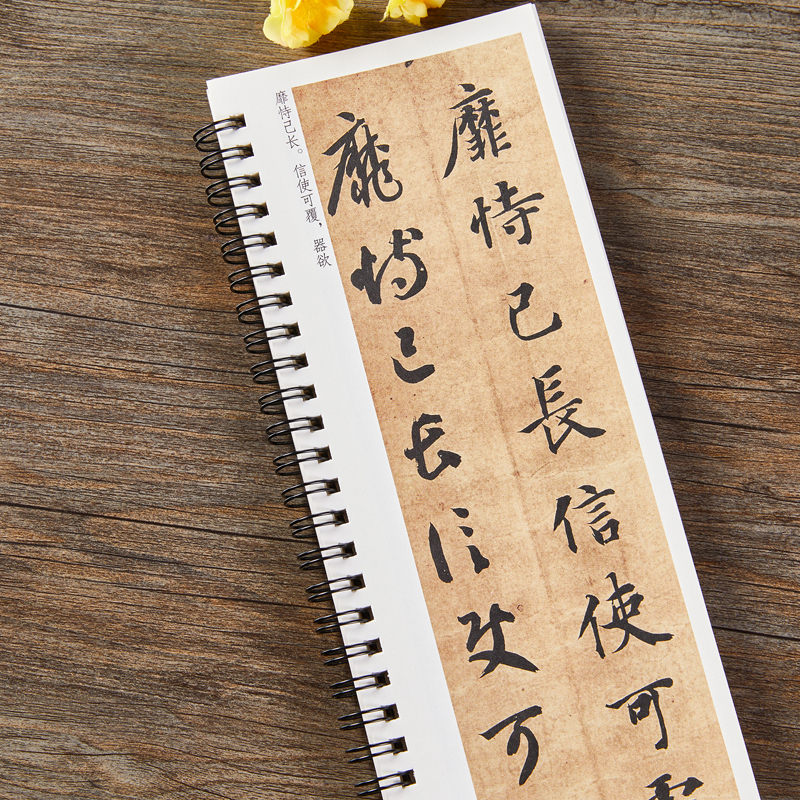 靡恃己長信使可
靡恃己長信使可
靡恃己长。信使可覆，器欲